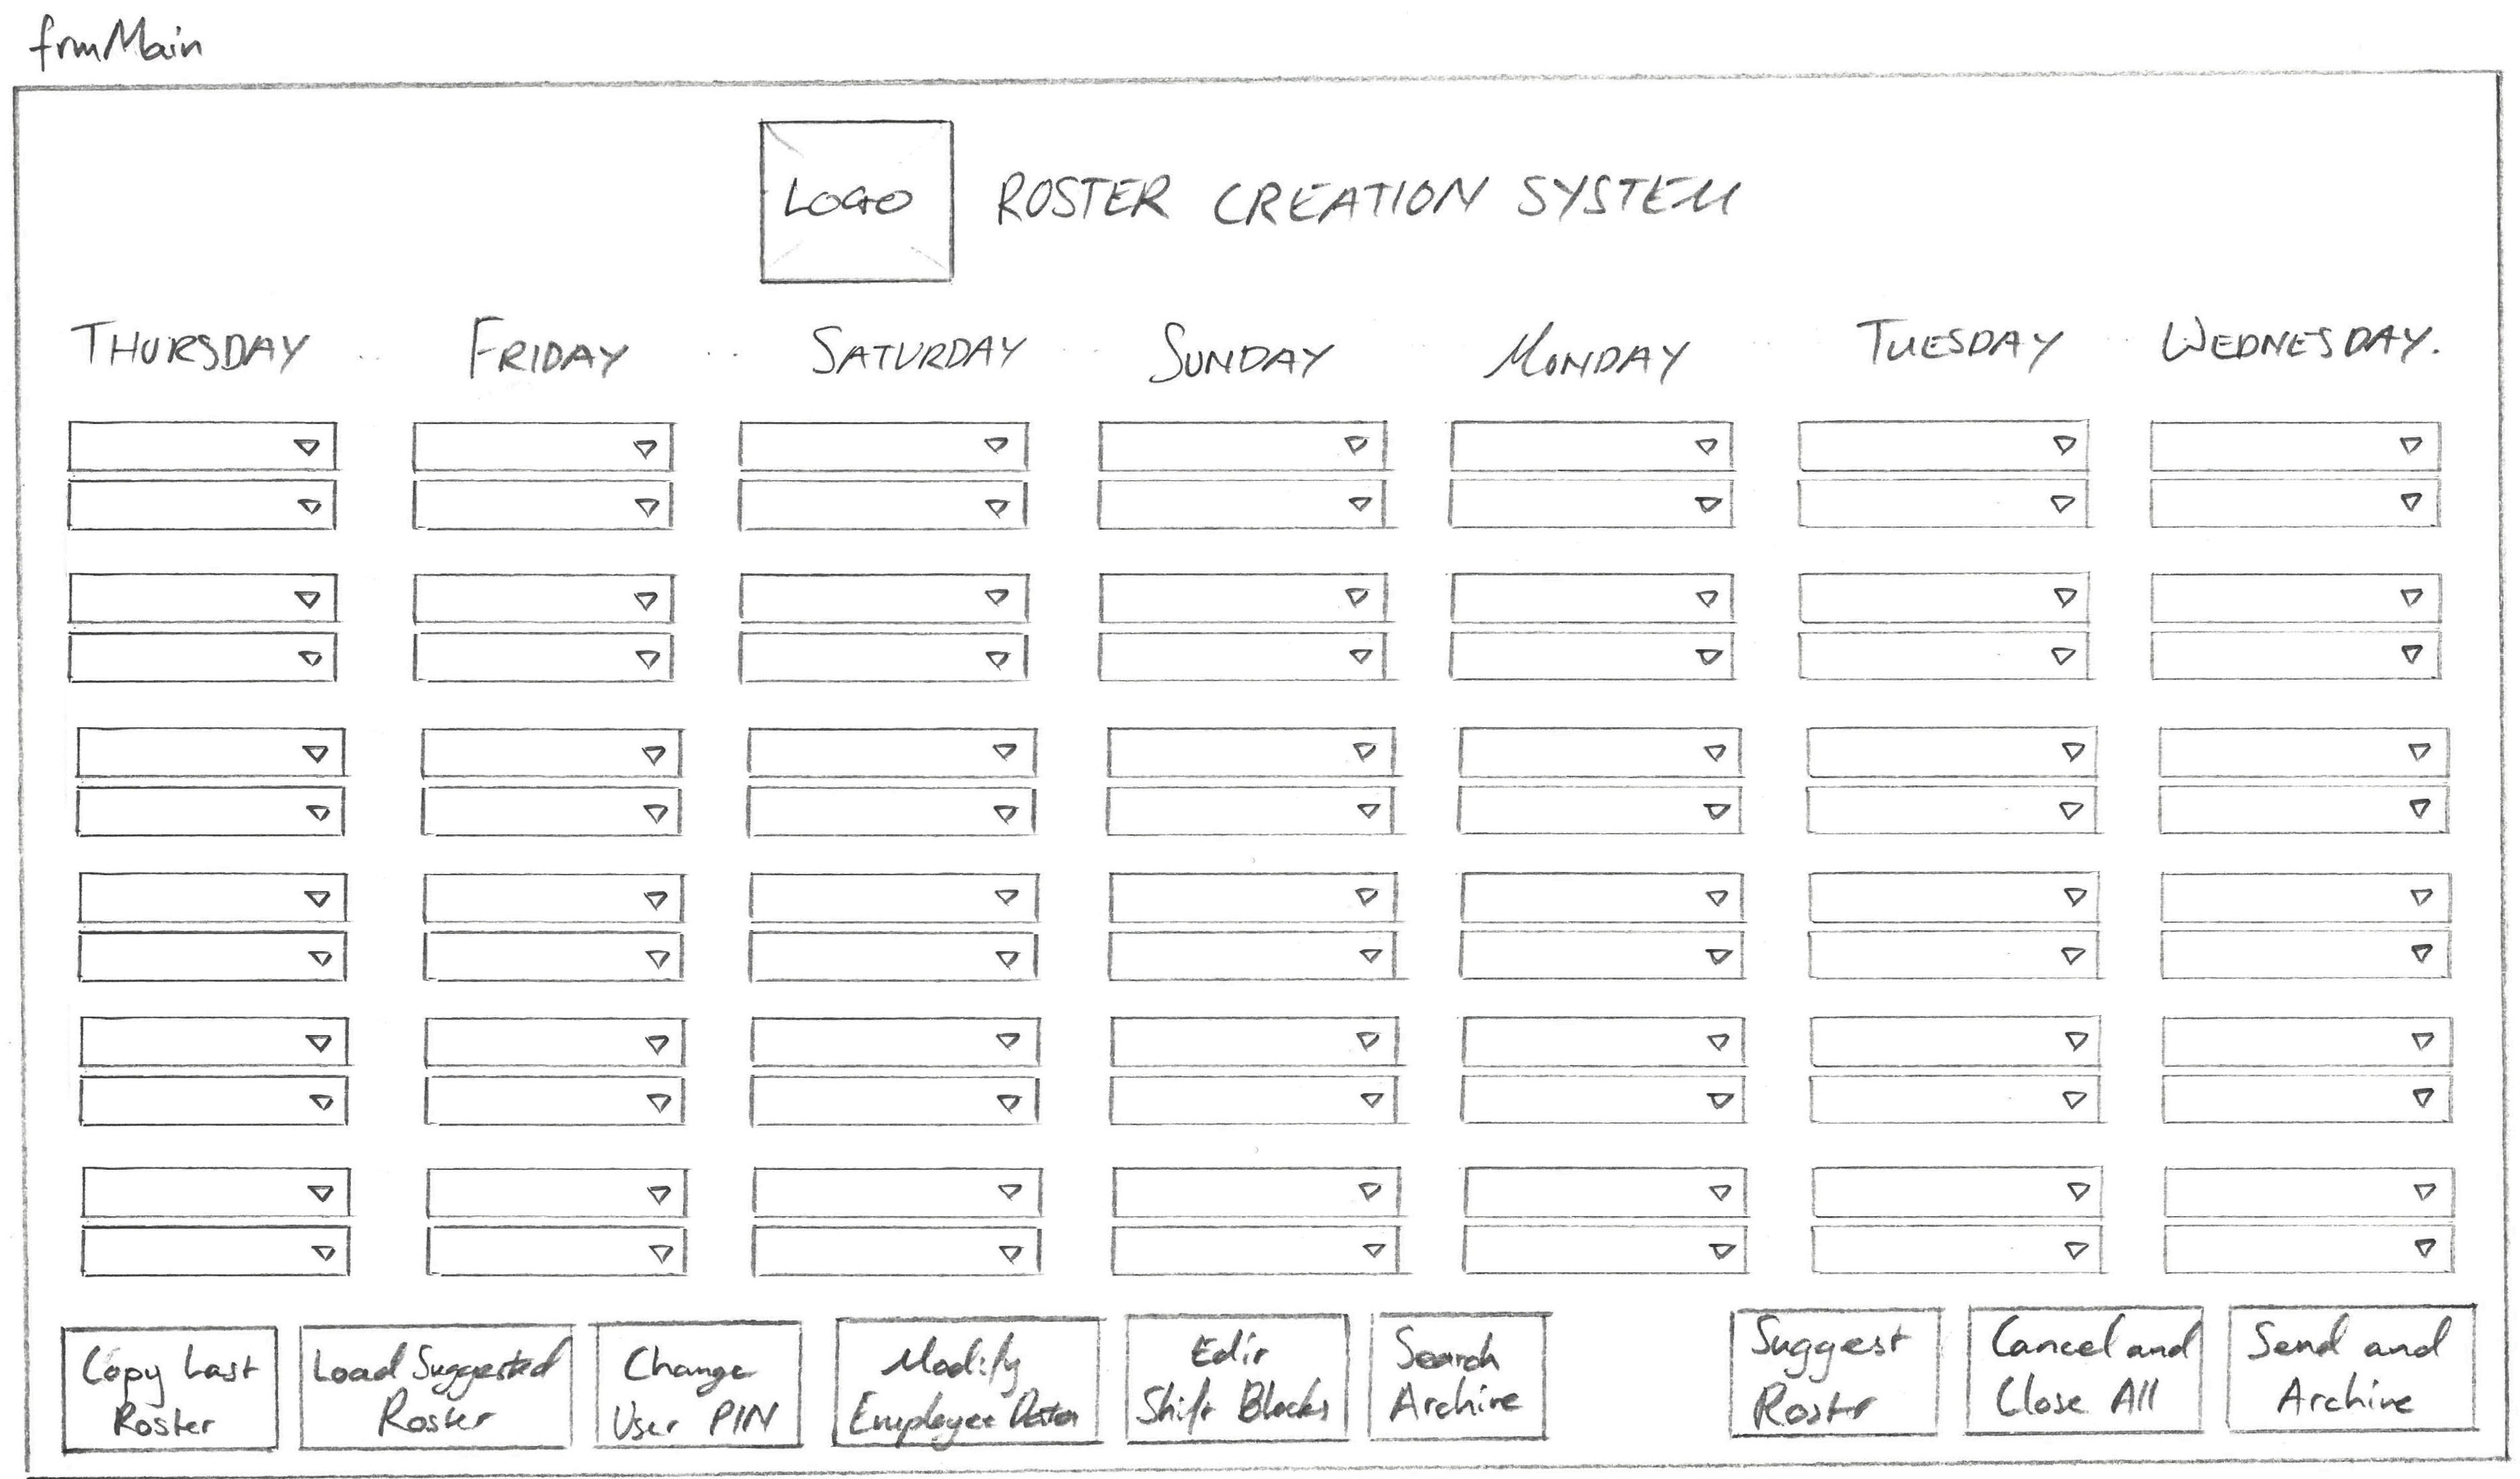 frmMain
LOGO
ROSTER CREATION SYSTEM
THURSDAY FRIDAY SATURDAY SUNDAY MONDAY TUESDAY WEDNESDAY.
Copy Last
Roster
Load Suggested
Roster
Change
User PIN
Modify
Employee Data
Edit
Shift Blocks
Search
Archive
Suggest
Roster
Cancel and
Close All
Send and
Archive